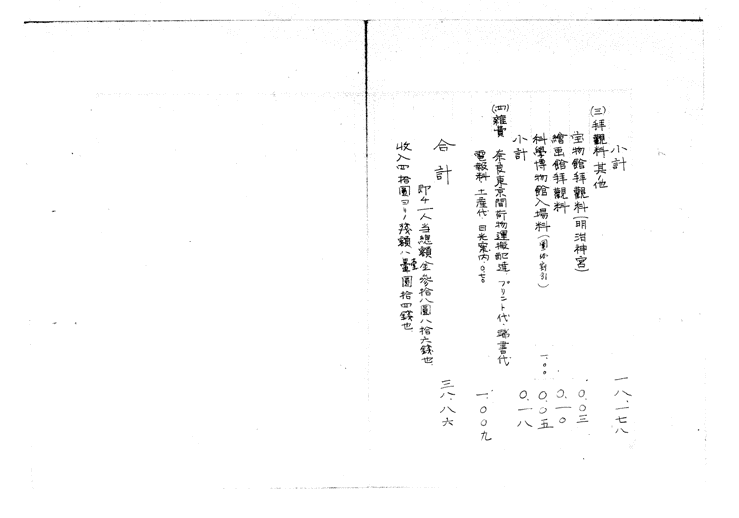 小計 一八.一七八
(三)拜觀料其ノ他
宝物館拜觀料(明治神宮) 〇.〇三
繪画館拜觀料 〇.一〇
科學博物館入場料(團体割引) 〇.〇五
小計 〇.一八
(四)雜費 奈良東京間荷物運搬配達、プリント代・端書代 一.〇〇
電報料・土産代・日光案内〇.七〇 一.〇〇九
合計 三八.八六
即チ一人当總額金參拾八圓八拾六錢也
收入四拾圓ヨリ殘額ハ壹圓拾四錢也